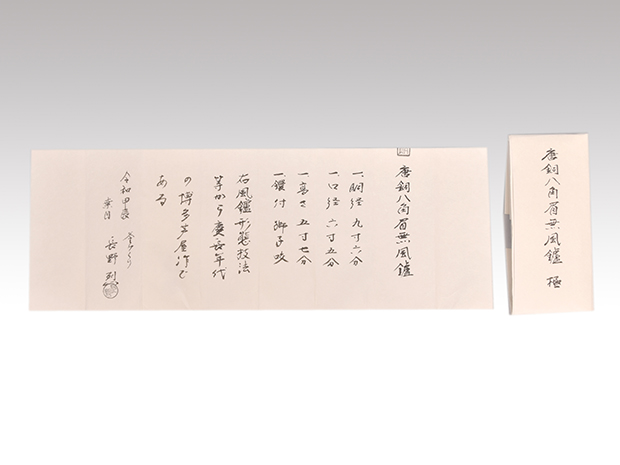 唐銅八角眉無風鑪 極
唐銅八角眉無風鑪
一、胴径 九寸六分
一、口径 六寸五分
一、高さ 五寸七分
一、鐶付 獅子咬
右風鑪形態技法
等から慶長年代
の博多芦屋作で
ある
令和甲辰
長野 烈